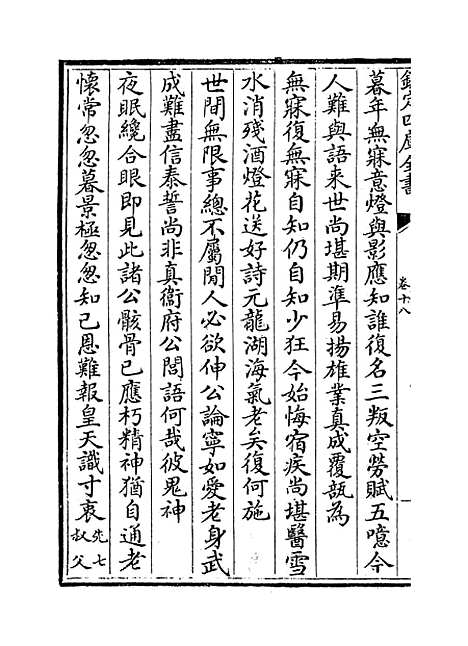 欽定四庫全書
卷十八
暮年無寐意燈與影應知誰復名三叛空勞賦五噫今
人難與語来世尚堪期準易揚雄業真成覆瓿為
無寐復無寐自知仍自知少狂今始悔宿疾尚堪醫雪
水消殘酒燈花送好詩元龍湖海氣老矣復何施
世間無限事總不屬閒人必欲伸公論寧如愛老身武
成難盡信泰誓尚非真衞府公閤語何哉彼鬼神
夜眠纔合眼即見此諸公骸骨已應朽精神猶自通老
懐常忽忽暮景極怱怱知己恩難報皇天識寸衷
先七
叔父